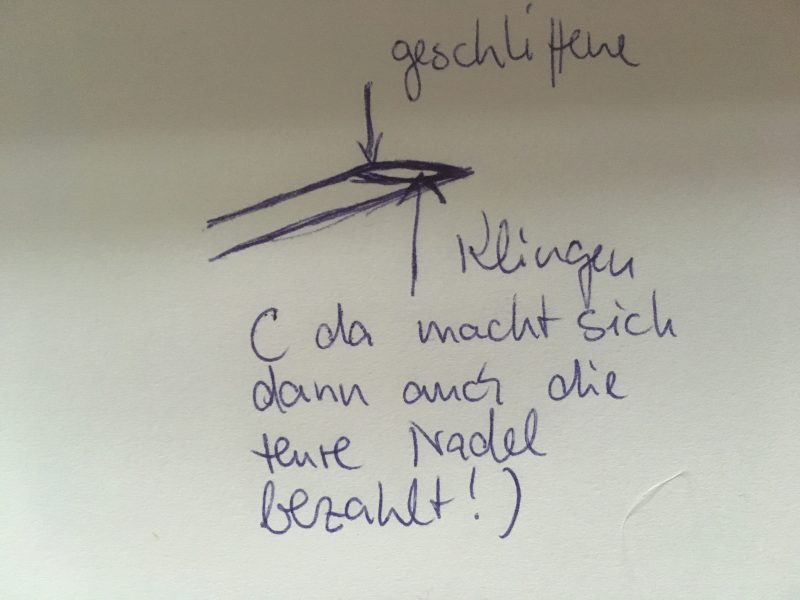 geschliffene
Klingen
( da macht sich
dann auch die
teure Nadel
bezahlt!)